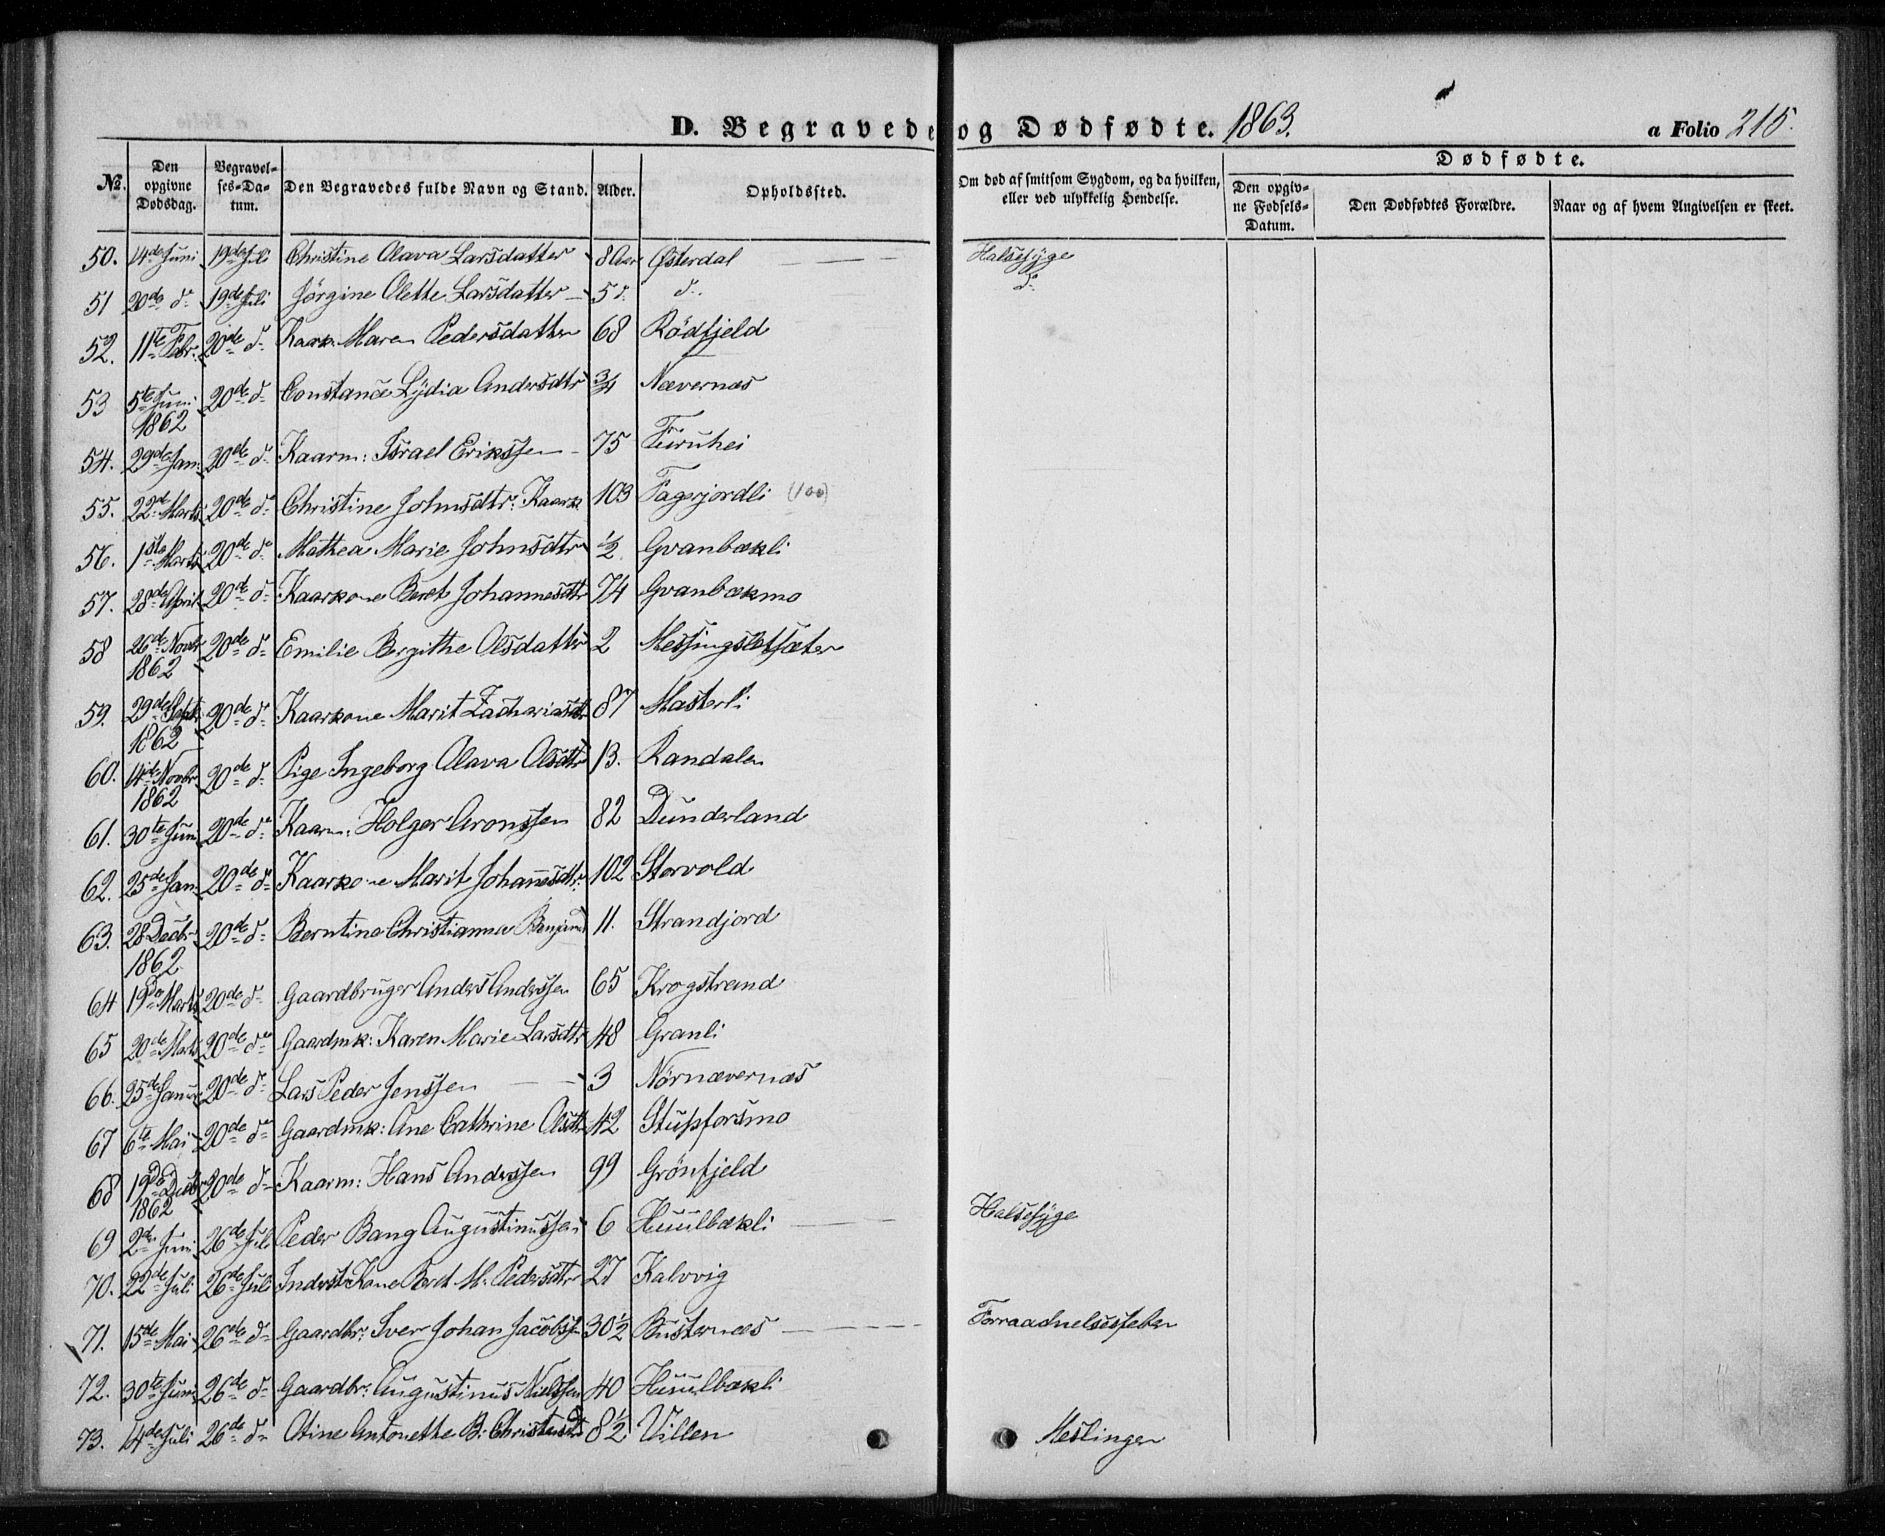 D. Begravede og Dødfødte. 1863. a Folio 215.
№. Den opgivne Dødsdag. Begravelses-Datum. Den Begravedes fulde Navn og Stand. Alder. Opholdssted. Om død af smitsom Sygdom, og da hvilken, eller ved ulykkelig Hendelse. Dødfødte.
Den opgivne Fødsels-Datum. Den Dødfødtes Forældre. Naar og af hvem Angivelsen er skeet.
50. 14de Juni 19de Juli Christine Olava Larsdatter 8 Aar Østerdal Halsesyge
51 20de d. 19de Juli Jørgine Olette Larsdatter 5 d. d. d.
52. 11te Febr. 20de d. Kaark. Maren Pedersdatter 68 Rödfjeld
53 5te Juni 1862 20de d. Constance Lydia Andersdtr 3/4 Nævernæs
54. 29de Jan. 20de d. Kaarm: Israel Erikssen 75 Furuhei
55. 22de Marts 20de d. Christine Johnsdtr: Kaark 103 Fagerjordli (100)
56. 1ste Marts 20de d. Mathea Marie Johnsdtr 1/2 Gvanbækli
57. 28de April 20de d. Kaarkone Beret Johannesdtr 74 Gvanbækmo
58 26de Novbr 1862 20de d. Emilie Bergithe Olsdatter 2 Messingsletsæter
59. 29de Septr 1862 20de d. Kaarkone Marit Zachariasdtr 87 Masterli
60. 14de Novbr 1862 20de d. Pige Ingeborg Olava Olsdtr 13. Randalen
61. 30te Juni 20de d. Kaarm: Holger Aronssen 82 Dunderland
62. 25de Jan. 20de d. Kaarkone Marit Johannesdtr. 102 Storvold
63. 28 Decbr 1862 20de d. Berntine Christianna Benjamind 11. Strandjord
64 19de Marts 20de d. Gaardbruger Anders Anderssen 65 Krogstrand
65 20de Marts 20de d. Gaardmk: Karen Marie Larsdtr 48 Granli
66. 25de Januar 20de d. Lars Peder Jenssen 3 Nörnævernæs
67 6te Mai 20de d. Gaardmk: Ane Cathrine Olsdtr 42 Stupforsmo
68 19de Decbr 1862 20de d. Kaarm: Hans Anderssen 99 Grönfjeld
69 2de Juni 26de Juli Peder Bang Augustinussen 6 Huulbækli Halsesyge
70. 22de Juli 26de Juli Inderst Kone Beret M. Pedersdtr 27 Kalvvig
71. 15de Mai 26de d. Gaardbr: Iver Johan Jacobss 30 1/2 Busternæs Forraadnelsesfeber
72. 30te Juni 26de d. Gaardbr: Augustinus Nielssen 40 Huulbækli
73. 14de Juli 26de d. Otine Antonette B: Christensd 8 1/2 Villen Meslinger